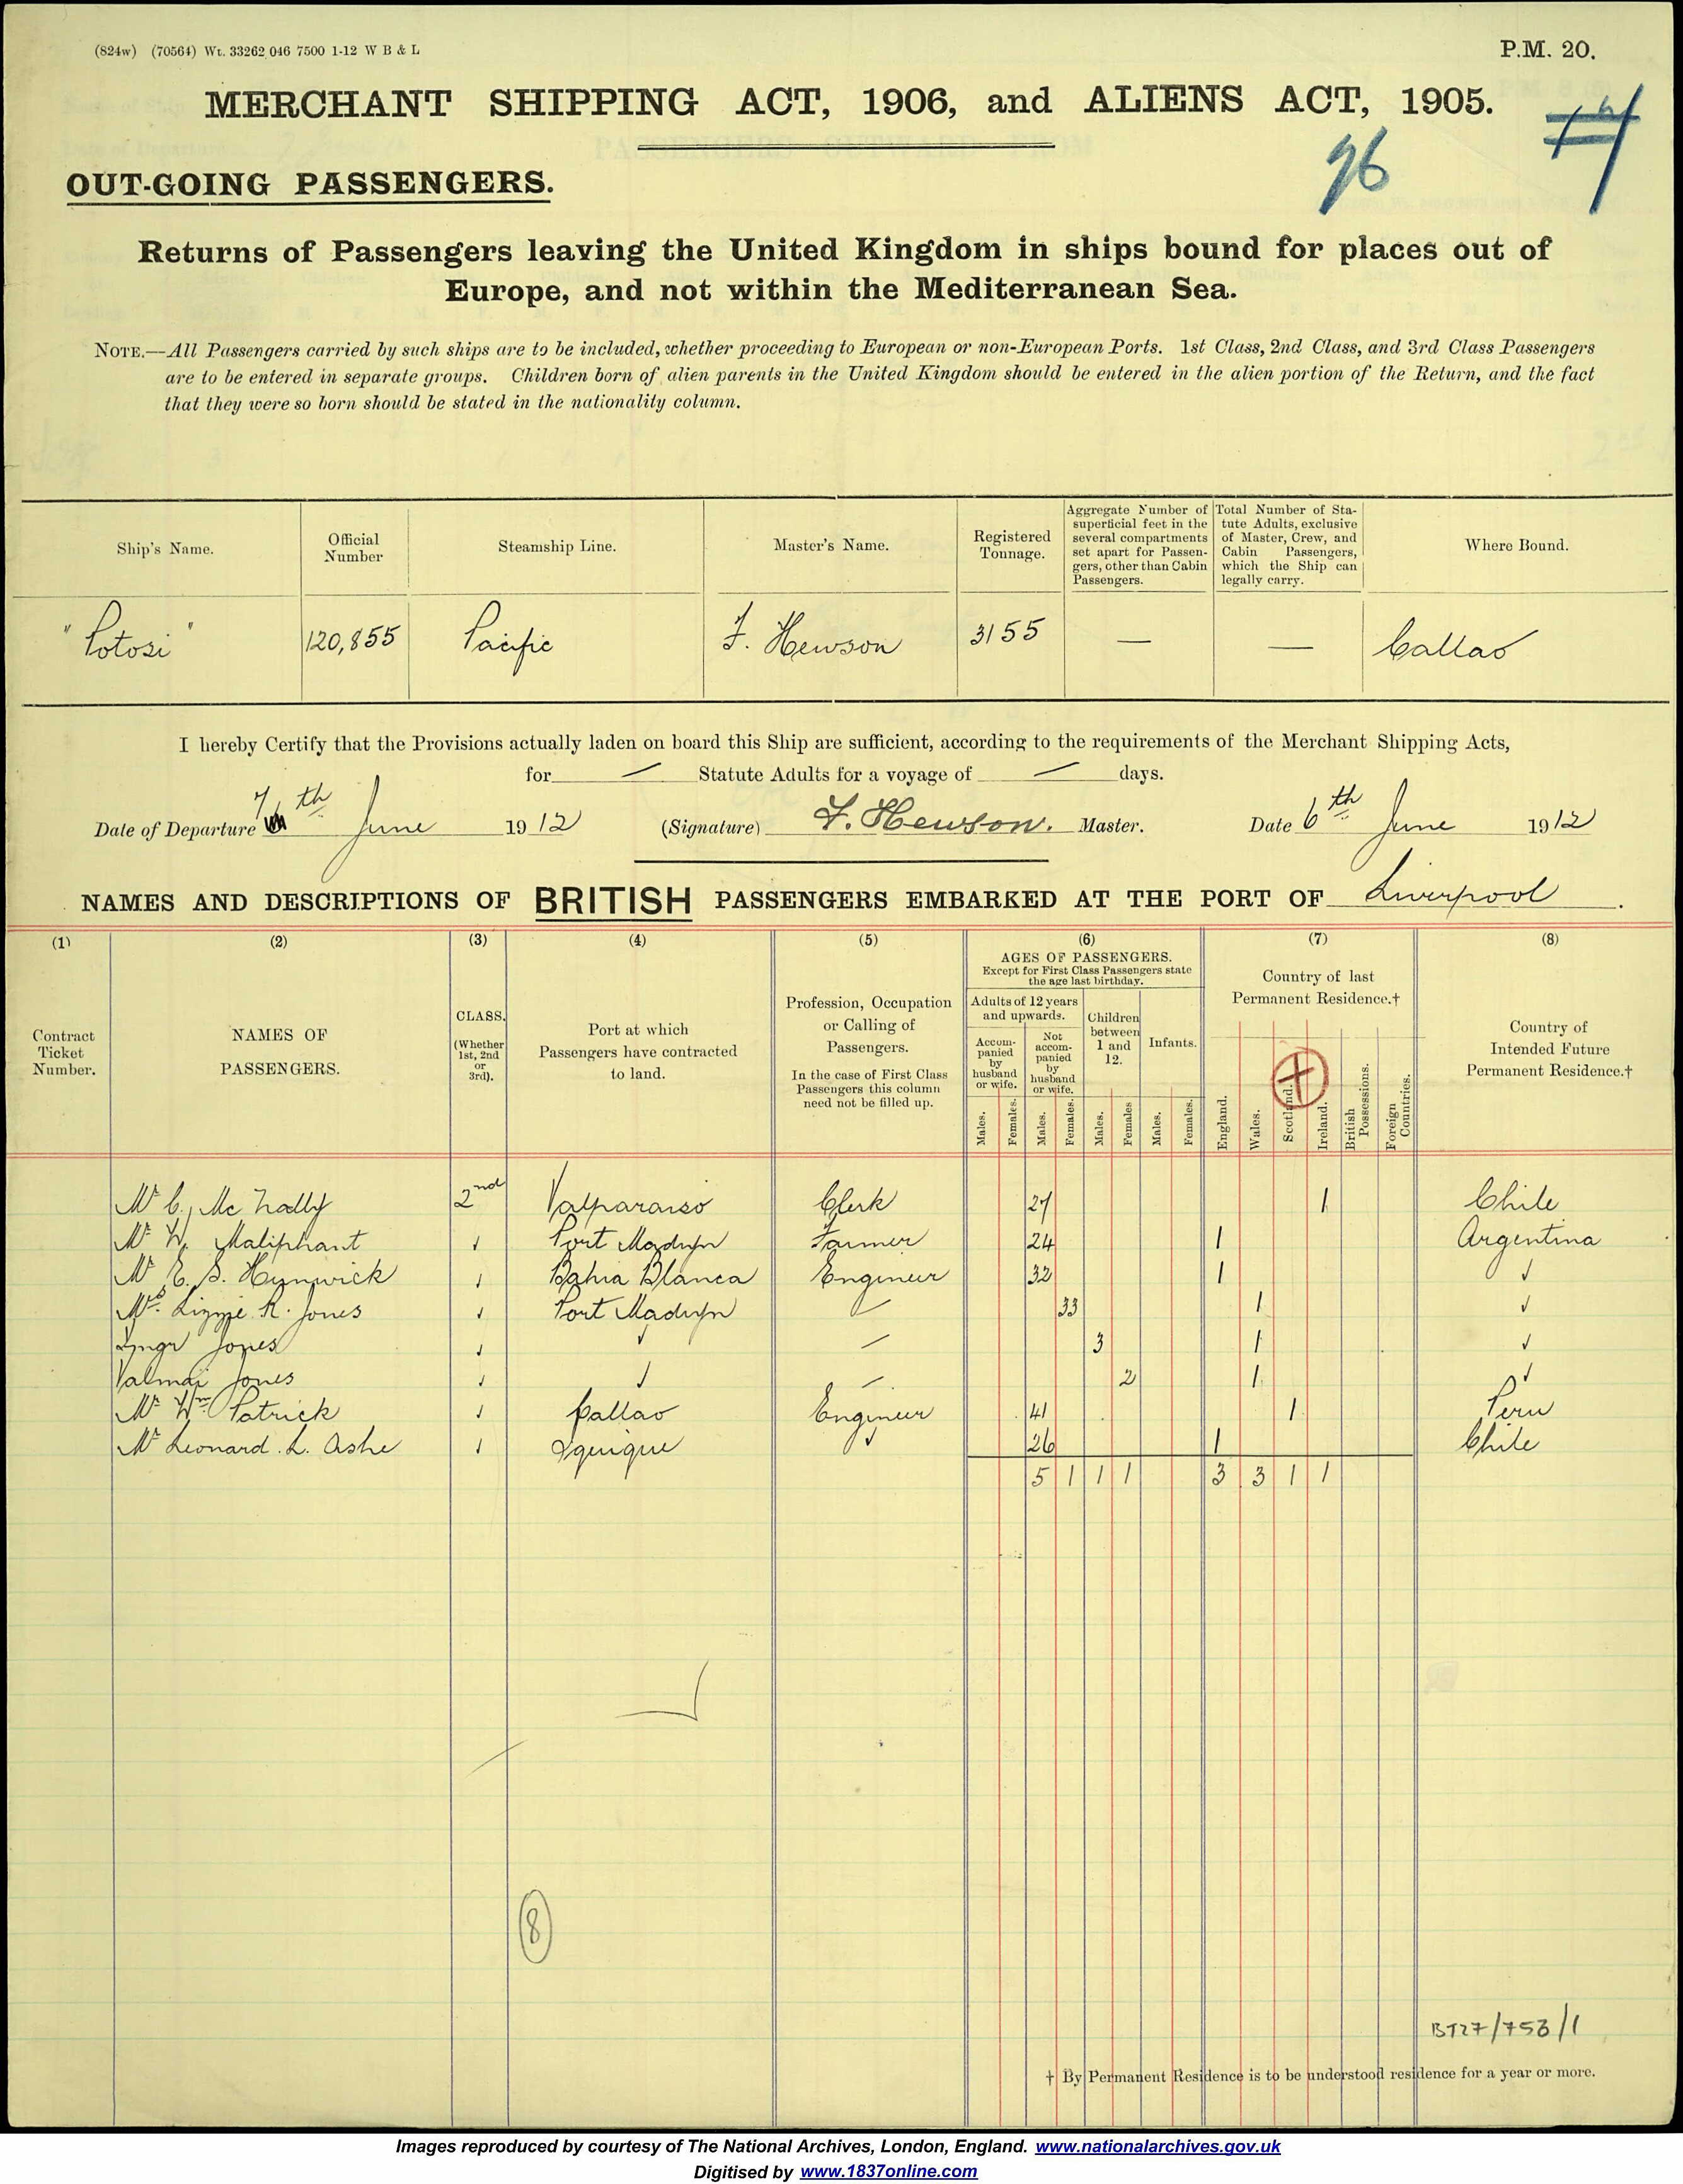 (824w) (70564) Wt. 33262 046 7500 1-12 W B & L
P.M. 20.
MERCHANT SHIPPING ACT, 1906, and ALIENS ACT, 1905.
96
OUT-GOING PASSENGERS.
Returns of Passengers leaving the United Kingdom in ships bound for places out of
Europe, and not within the Mediterranean Sea.
NOTE.—All Passengers carried by such ships are to be included, whether proceeding to European or non-European Ports. 1st Class, 2nd Class, and 3rd Class Passengers
are to be entered in separate groups. Children born of alien parents in the United Kingdom should be entered in the alien portion of the Return, and the fact
that they were so born should be stated in the nationality column.
Ship's Name.
Official Number
Steamship Line.
Master's Name.
Registered Tonnage.
Aggregate Number of superficial feet in the several compartments set apart for Passengers, other than Cabin Passengers.
Total Number of Statute Adults, exclusive of Master, Crew, and Cabin Passengers, which the Ship can legally carry.
Where Bound.
"Potosi" 120,855 Pacific F. Hewson 3155 — — Callao
I hereby Certify that the Provisions actually laden on board this Ship are sufficient, according to the requirements of the Merchant Shipping Acts,
for — Statute Adults for a voyage of — days.
Date of Departure 7th June 1912 (Signature) F. Hewson. Master. Date 6th June 1912
NAMES AND DESCRIPTIONS OF BRITISH PASSENGERS EMBARKED AT THE PORT OF Liverpool.
(1) (2) (3) (4) (5) (6) (7) (8)
Contract Ticket Number.
NAMES OF PASSENGERS.
CLASS. (Whether 1st, 2nd or 3rd).
Port at which Passengers have contracted to land.
Profession, Occupation or Calling of Passengers.
In the case of First Class Passengers this column need not be filled up.
AGES OF PASSENGERS.
Except for First Class Passengers state the age last birthday.
Adults of 12 years and upwards.
Accompanied by husband or wife.
Not accompanied by husband or wife.
Children between 1 and 12.
Infants.
Males. Females. Males. Females. Males. Females Males. Females.
Country of last Permanent Residence.†
England. Wales. Scotland. Ireland. British Possessions. Foreign Countries.
Country of Intended Future Permanent Residence.†
Mr C. McNally 2nd Valparaiso Clerk 27 1 Chile
Mr W. Maliphant ✓ Port Madryn Farmer 24 1 Argentina
Mr E. S. Hunwick ✓ Bahia Blanca Engineer 32 1 ✓
Mrs. Lizzie R. Jones ✓ Port Madryn — 33 1 ✓
Jones ✓ ✓ — 3 1 ✓
Valmai Jones ✓ ✓ — 2 1 ✓
Mr Wm Patrick ✓ Callao Engineer 41 1 Peru
Mr Leonard. L. Ashe ✓ Iquique ✓ 26 1 Chile
5 1 1 1 3 3 1 1
8
BT27/753/1
† By Permanent Residence is to be understood residence for a year or more.
Images reproduced by courtesy of The National Archives, London, England. www.nationalarchives.gov.uk
Digitised by www.1837online.com